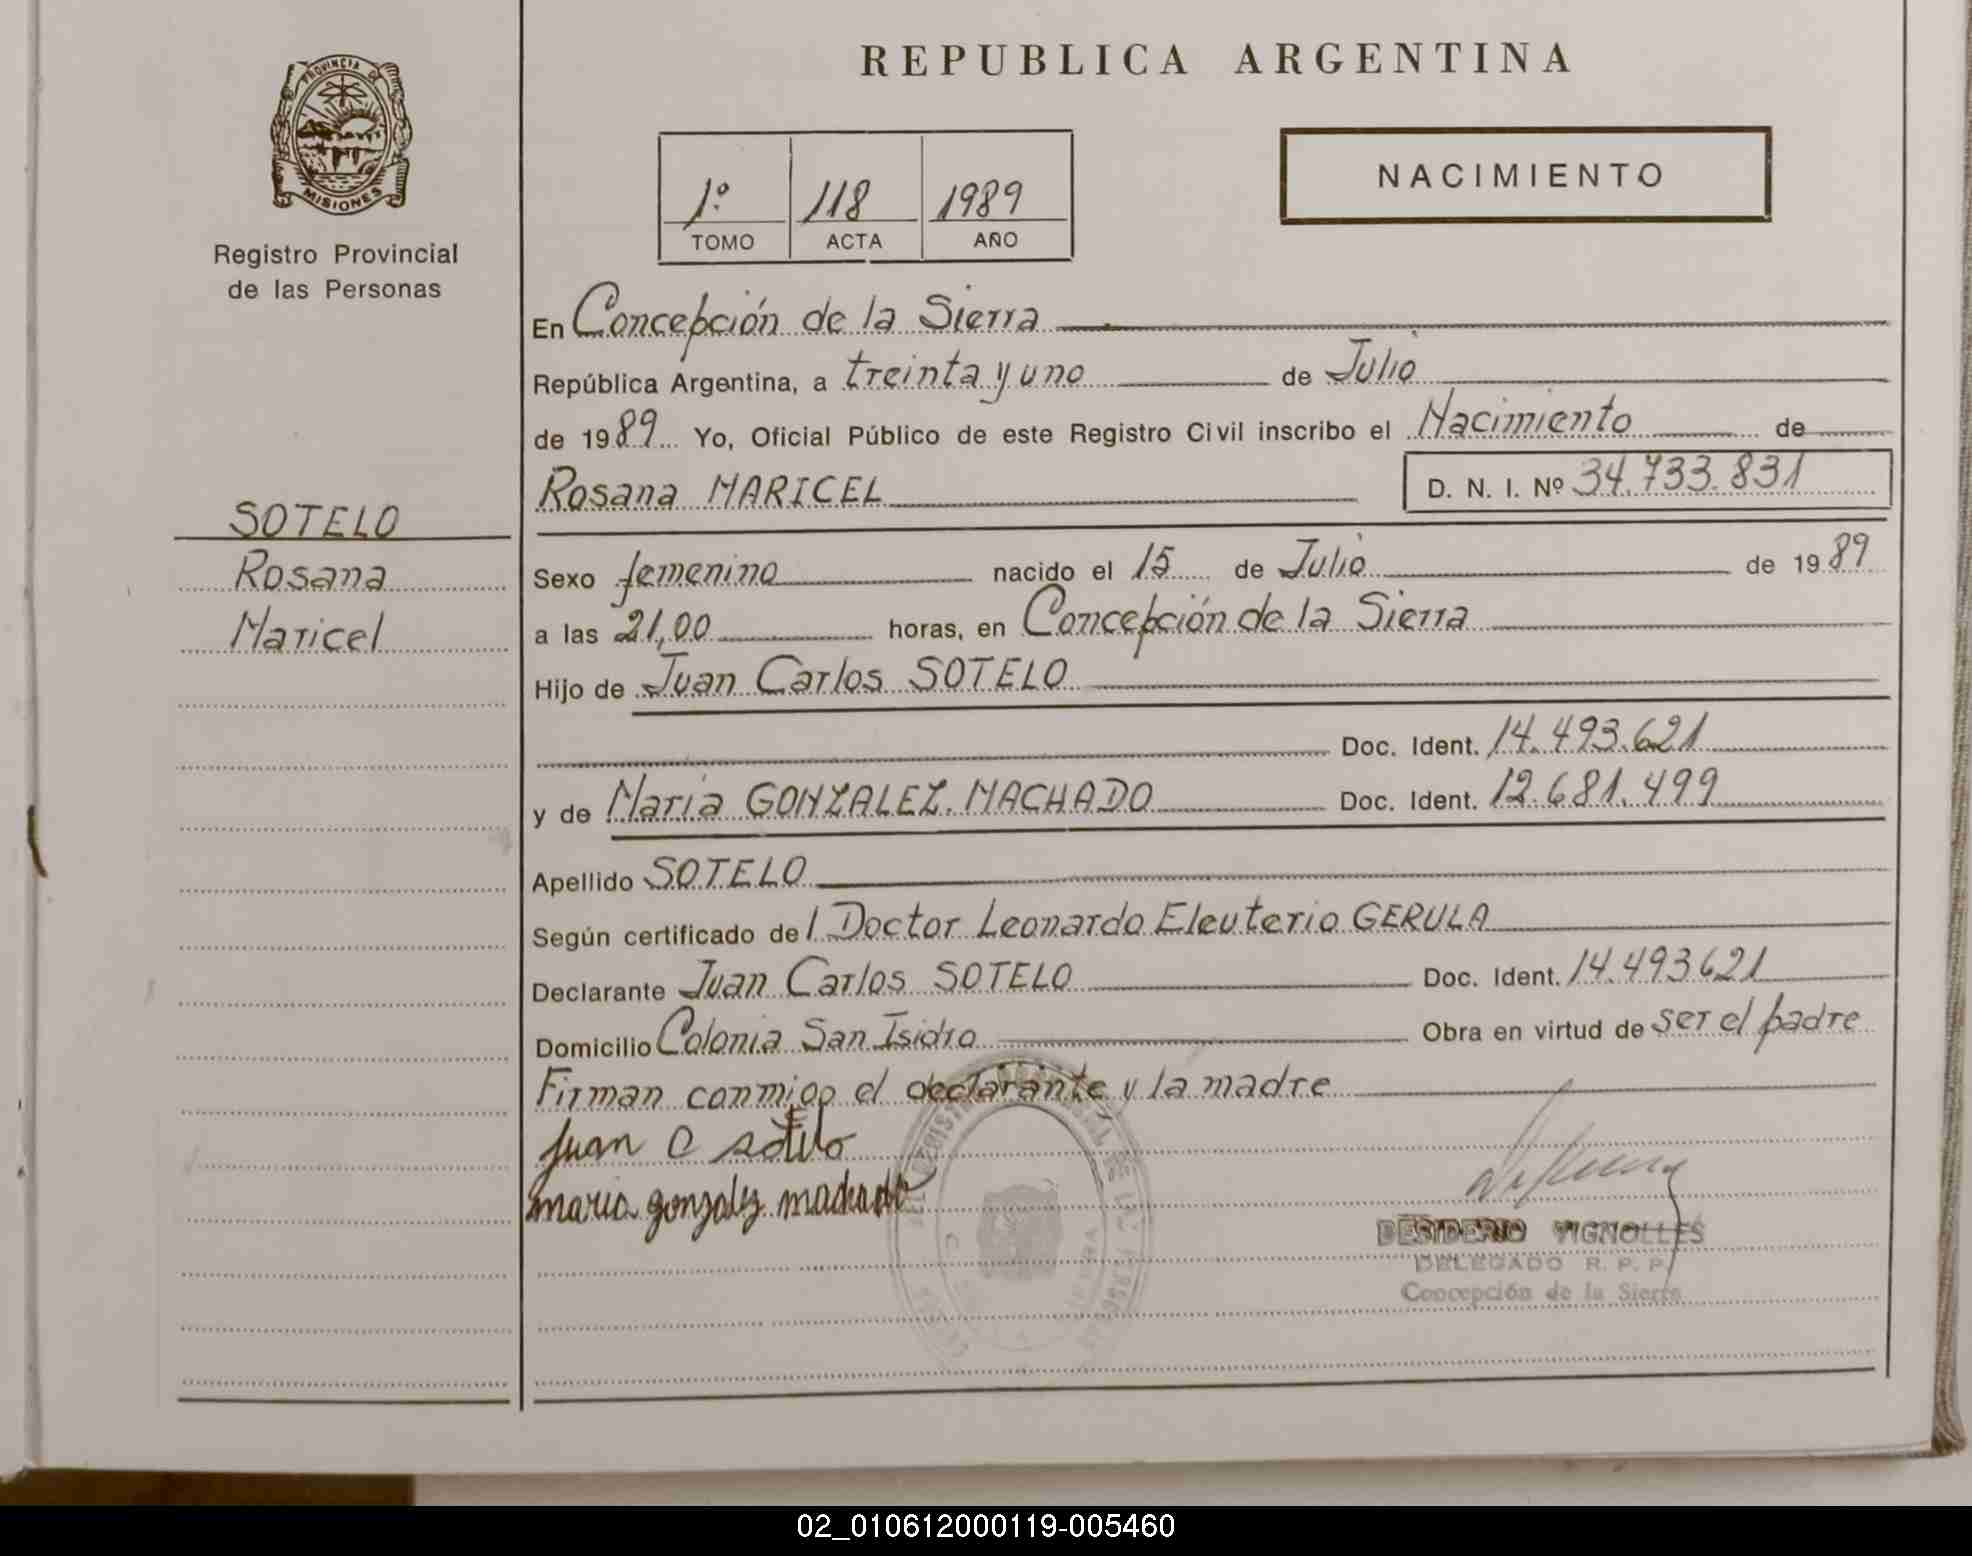 PROVINCIA DE
MISIONES
Registro Provincial
de las Personas
SOTELO
Rosana
Maricel
REPUBLICA ARGENTINA
1º 118 1989
TOMO ACTA AÑO
NACIMIENTO
En Concepción de la Sierra
República Argentina, a treinta y uno de Julio
de 1989 Yo, Oficial Público de este Registro Civil inscribo el Nacimiento de
Rosana MARICEL D. N. I. Nº 34.733.831
Sexo femenino nacido el 15 de Julio de 1989
a las 21,00 horas, en Concepción de la Sierra
Hijo de Juan Carlos SOTELO
Doc. Ident. 14.493.621
y de Maria GONZALEZ MACHADO Doc. Ident. 12.681.499
Apellido SOTELO
Según certificado del Doctor Leonardo Eleuterio GERULA
Declarante Juan Carlos SOTELO Doc. Ident. 14.493621
Domicilio Colonia San Isidro Obra en virtud de ser el padre
Firman conmigo el declarante y la madre
Juan C sotelo
maria gonzalez machado
DESIDERIO VIGNOLLES
DELEGADO R. P. P.
Concepción de la Sierra
02_010612000119-005460